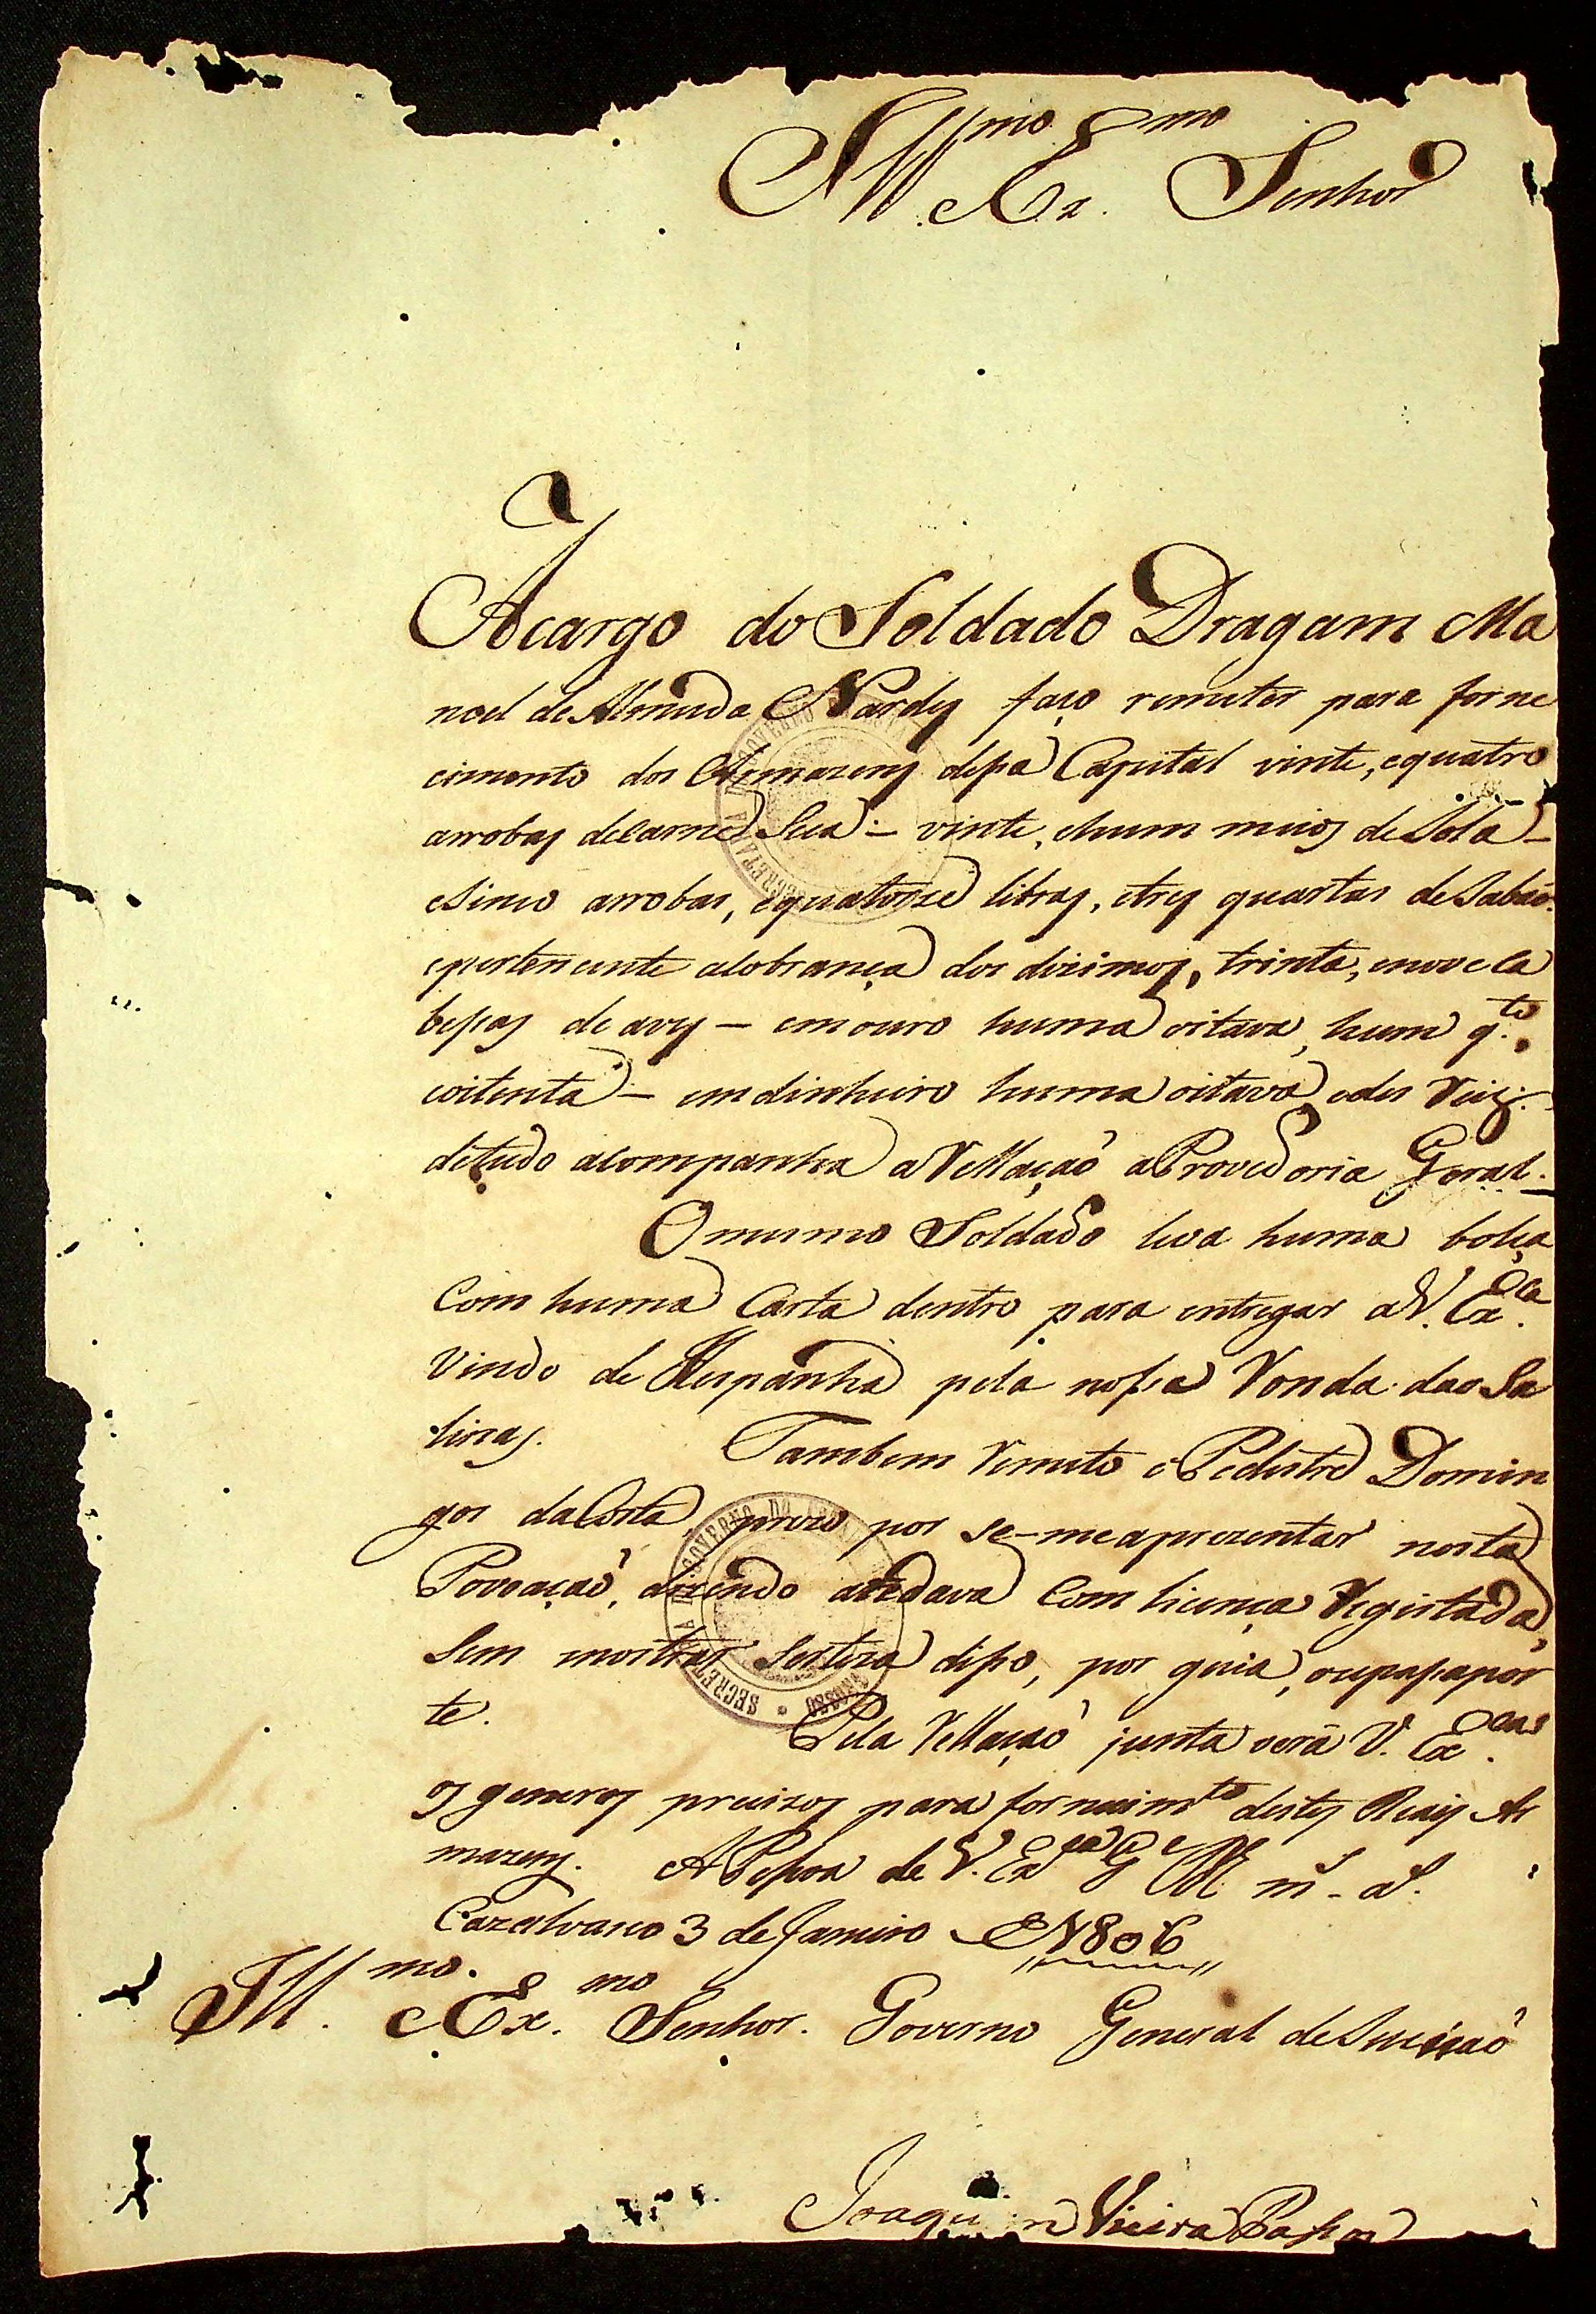 Ill.mo e Ex.mo Senhor
Acargo do Soldado Dragam Ma
noel de Almeida Nardes faço remeter para forne
cimento dos Armazens dessa Capital vinte, equatro
arrobas decarne Seca - vinte, ehum meios de Sola -
esinco arrobas, equatorze libras, etres quartas de Sabaõ.
epertencente acobrança dos dizimos, trinta, enove Ca
bessas de aves - emouro huma oitava, hum q.to
eoitenta - emdinheiro huma oitava edes Reis:
detudo acompanha aRellaçaõ aProvedoria Geral. -
Omesmo Soldado leva huma bolça
Com huma Carta dentro para entregar aV. Ex.ca
Vindo de Hespanha pela nossa Ronda das Sa
linas. Tambem Remeto o Pedestre Domin
gos daCosta, prezo por se-meaprezentar nesta
Povoaçaõ, dizendo andava Com licença Registada,
Sem mostrar Serteza disso, por guia, oupassapor
te. Pela Rellaçaõ junta verâ V. Ex.cas
os generos precizos para fornecim.to destes Reais Ar
mazens. APessoa de V. Ex.ca G.e m.s a.s
Cazalvasco 3 de Janeiro de 1806
Ill.mo e Ex.mo Senhor. Governo General deSucessaõ
Joaquim Vieira Passos
SECRETARIA DO GOVERNO DO
SECRETARIA DO GOVERNO DO GROSSO